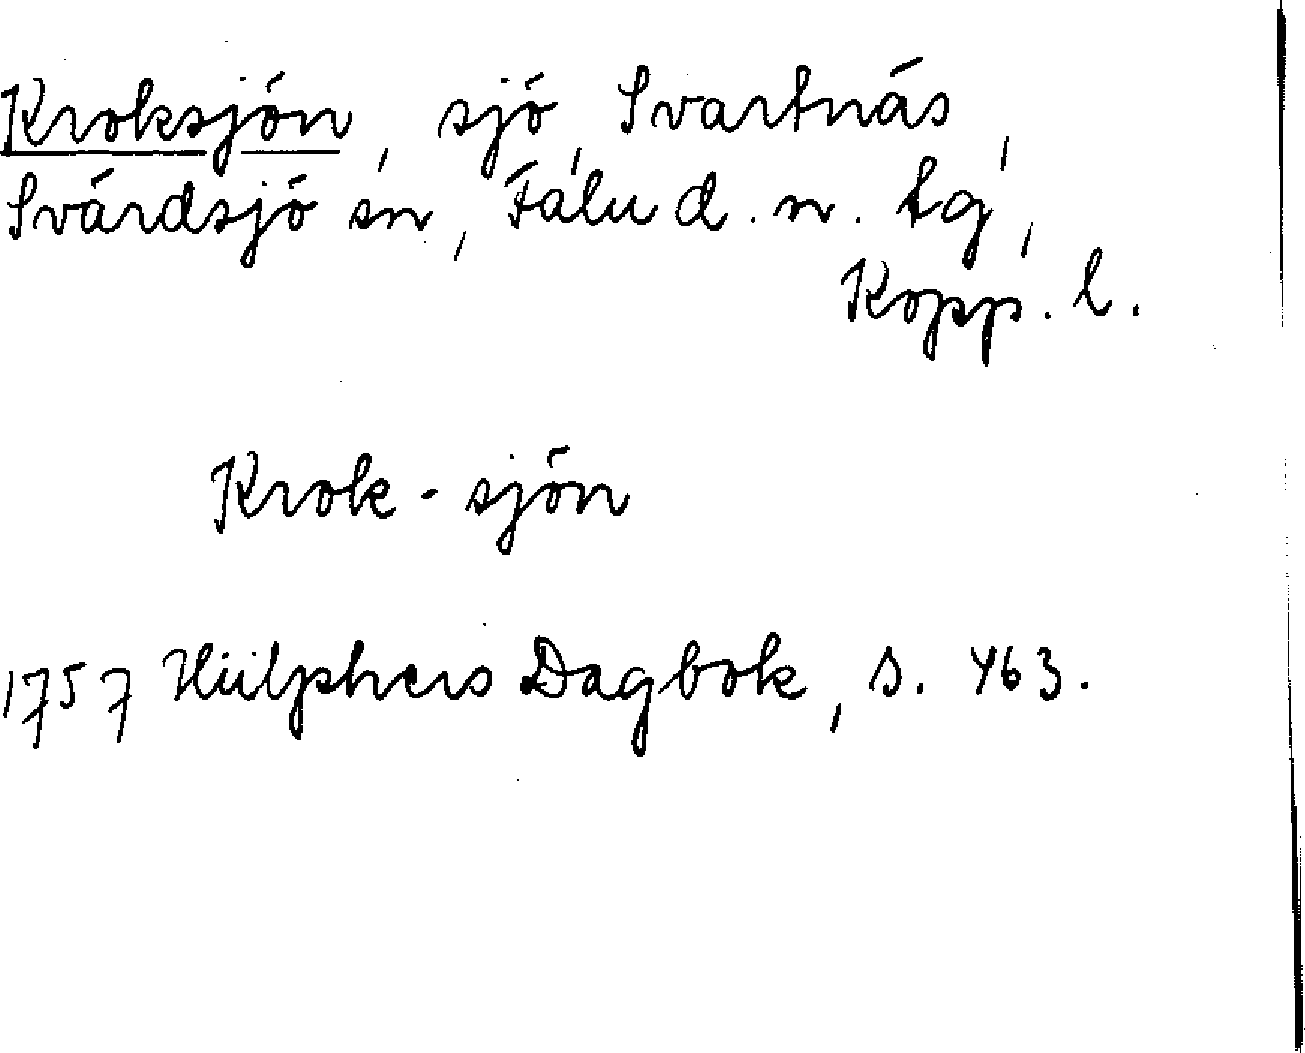 Kroksjön, sjö, Svartnäs,
Svärdsjö sn, Falu d. n. tg,
Kopp. l.
Krok-sjön
1757 Hülphers Dagbok, s. 463.